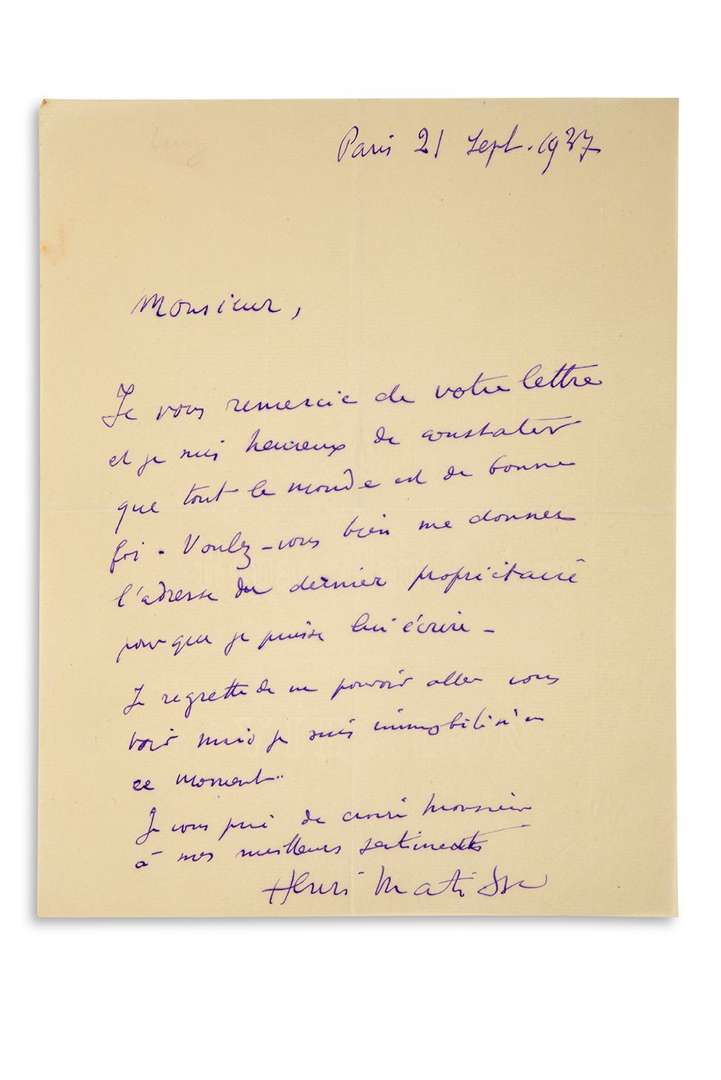 Paris 21 Sept. 1937
Monsieur,
Je vous remercie de votre lettre
et je suis heureux de constater
que tout le monde est de bonne
foi. Voulez-vous bien me donner
l'adresse du dernier propriétaire
pour que je puisse lui écrire –
Je regrette de ne pouvoir aller vous
voir mais je suis immobilisé en
ce moment.
Je vous prie de croire Monsieur
à mes meilleurs sentiments
Henri Matisse